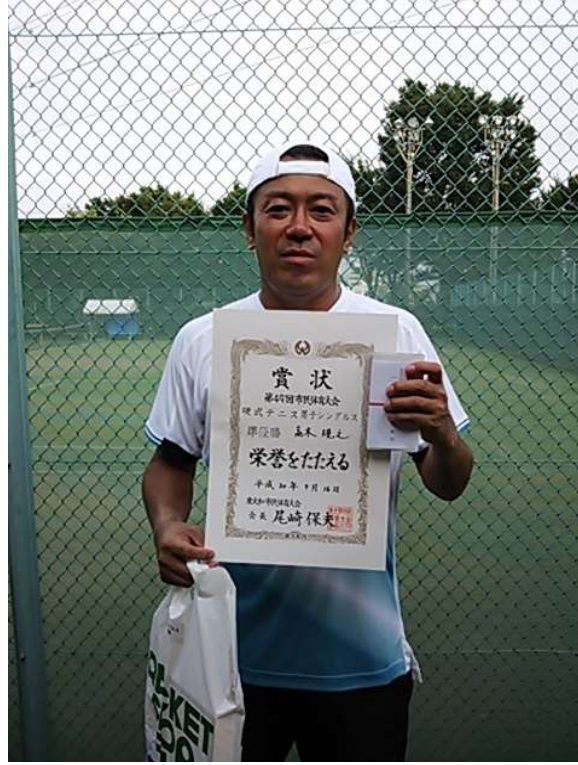 賞状
第47回市民体育大会
硬式テニス男子シングルス
準優勝 高木
栄誉をたたえる
平成30年9月16日
東大和市民体育大会
会長 尾崎保夫